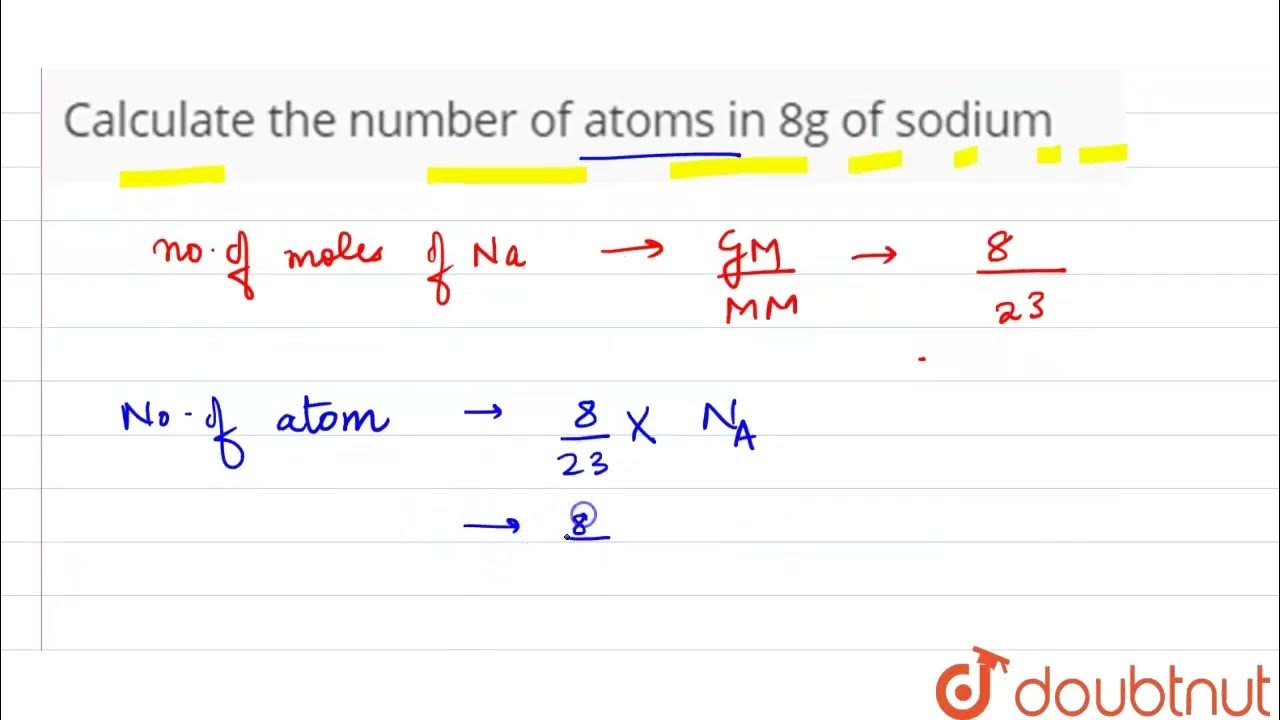 Calculate the number of atoms in 8g of sodium
no. of moles of Na → GM/MM → 8/23
No. of atom → 8/23 X N_A
→ 8
doubtnut